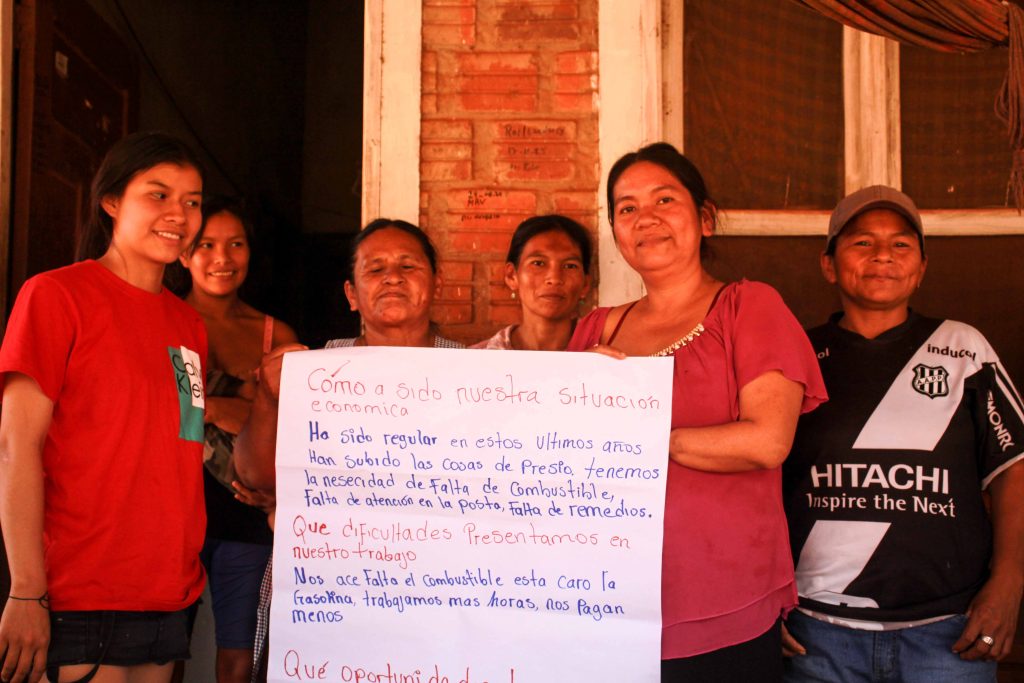 Cómo a sido nuestra situación
economica
Ha sido regular en estos ultimos años
Han subido las cosas de Presio, tenemos
la nesecidad de Falta de combustible,
Falta de atención en la posta, Falta de remedios.
Que dificultades Presentamos en
nuestro trabajo
Nos ace Falta el combustible esta caro la
Gasolina, trabajamos mas horas, nos Pagan
menos
Qué
Calvin
Klein
inducol
HITACHI
Inspire the Next